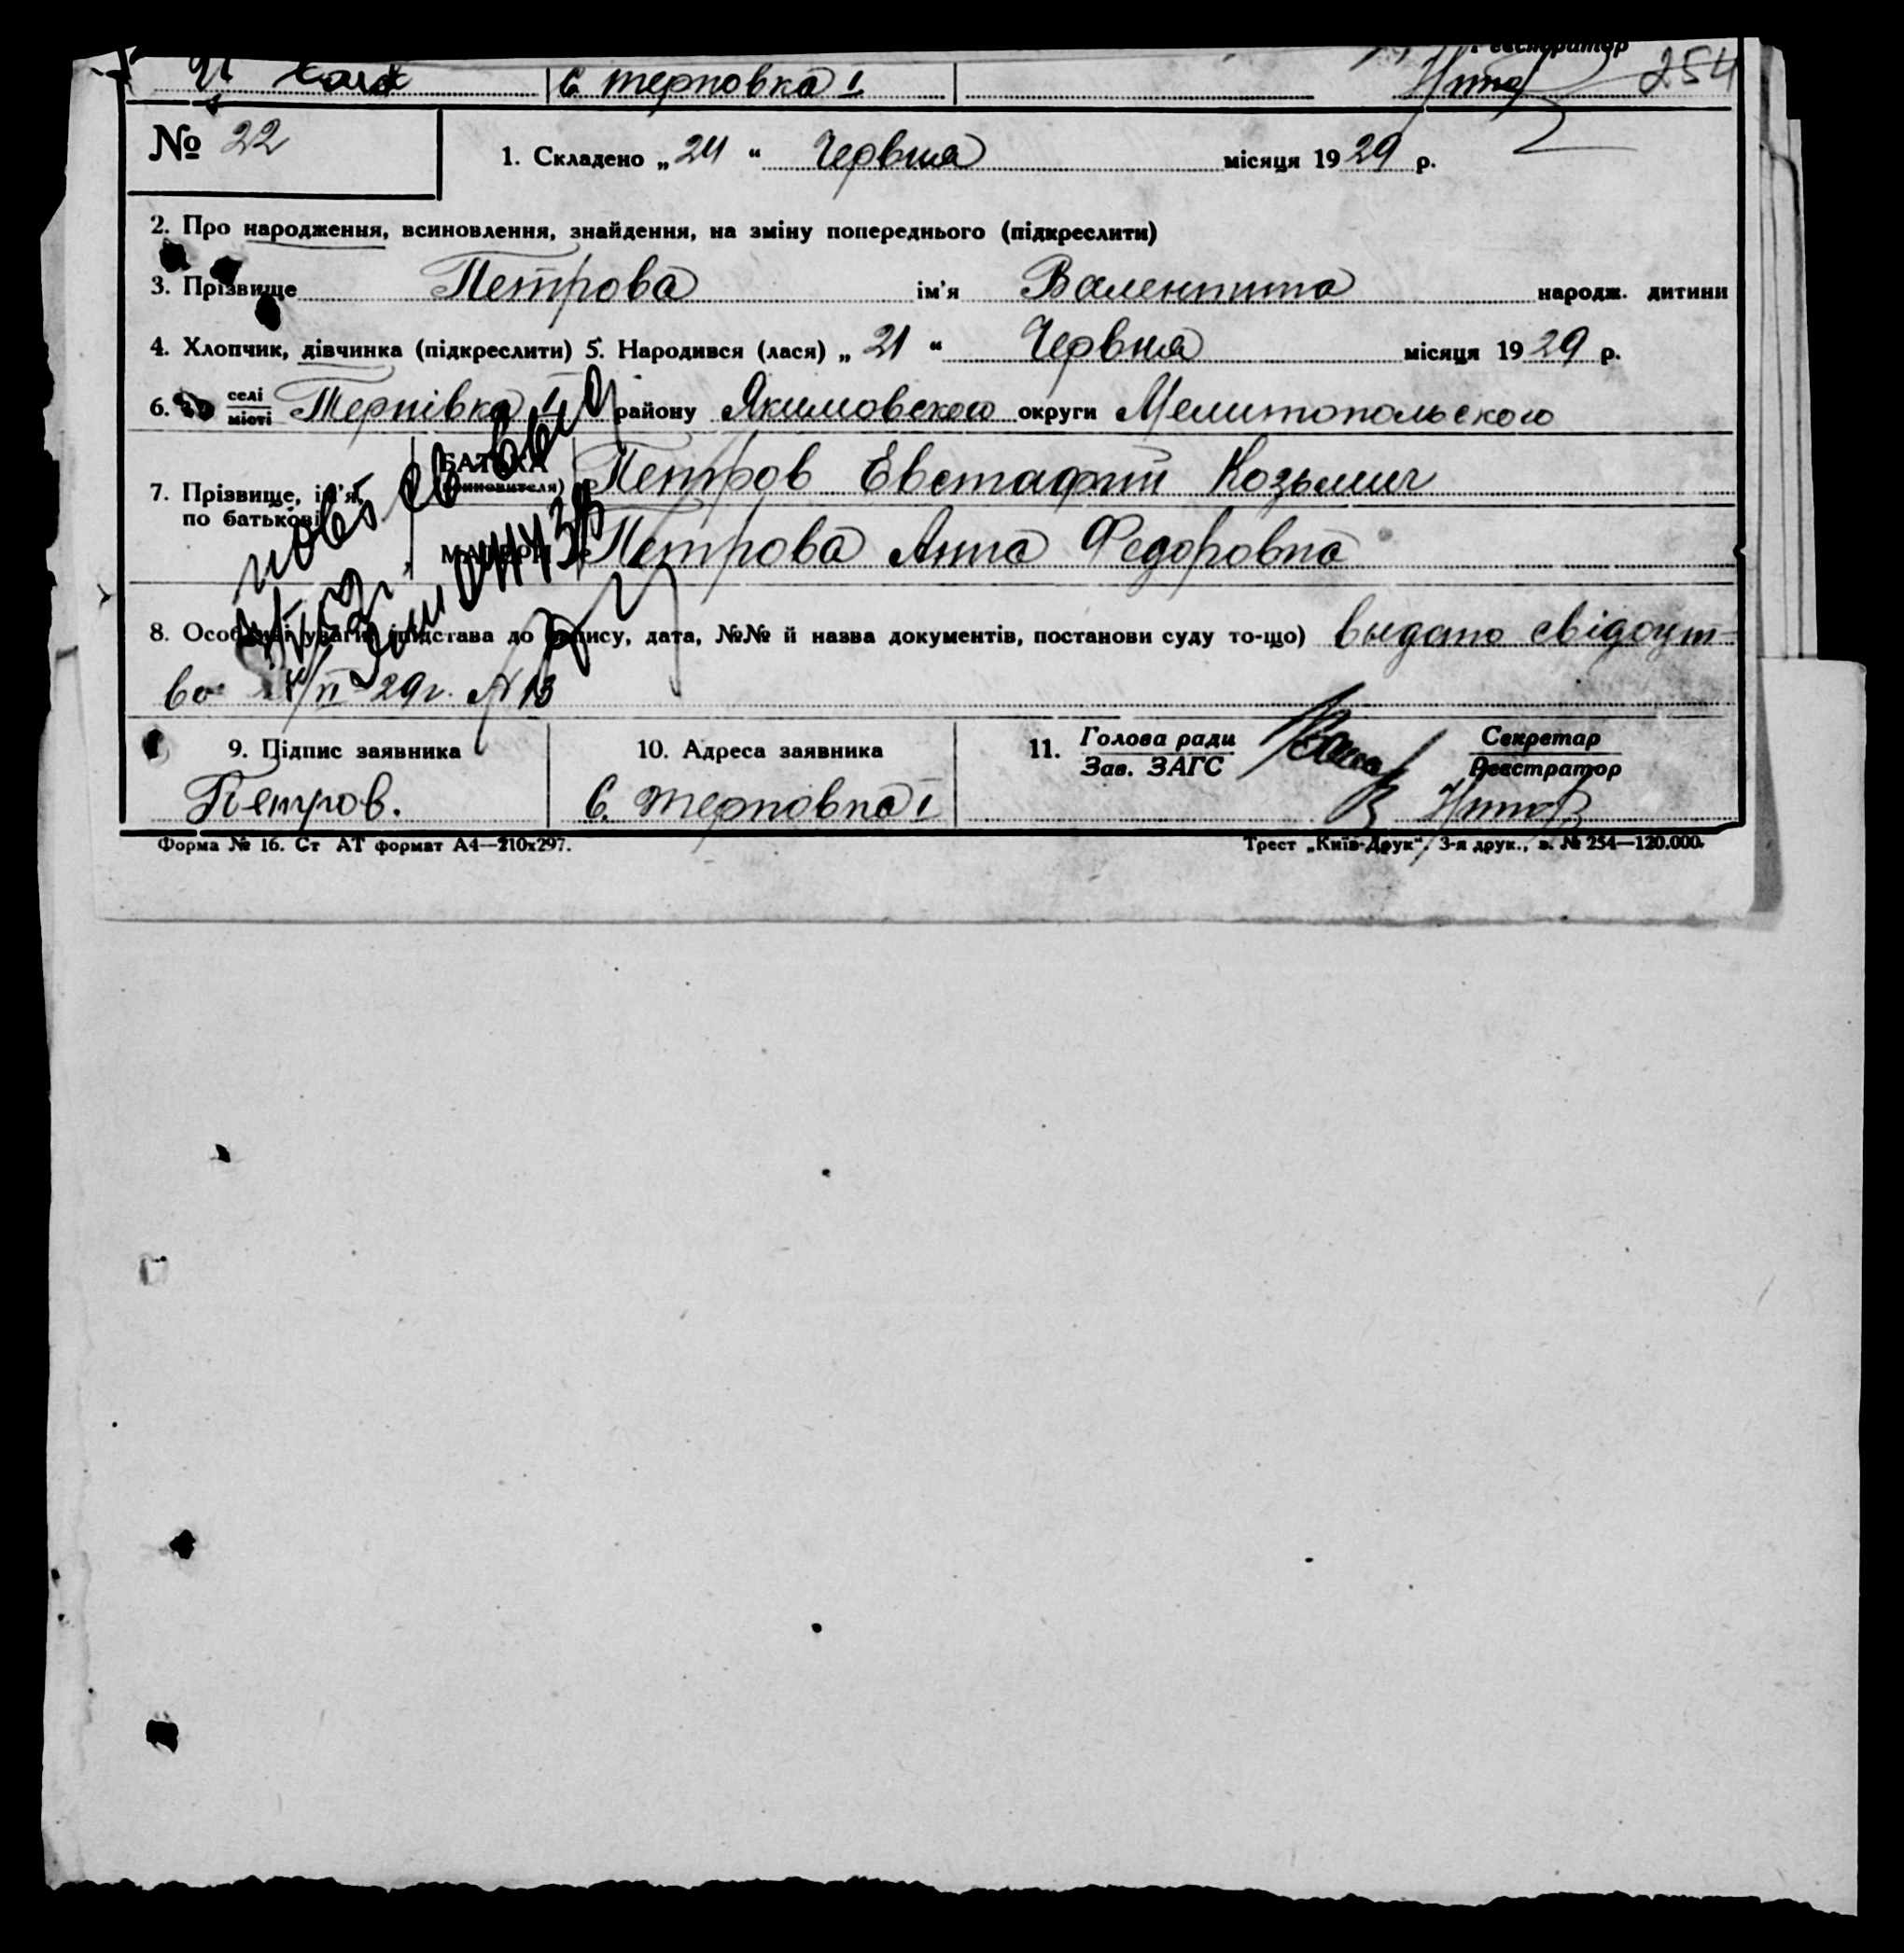 Реєстратор
с. Терновка I 254
№ 22
1. Складено „24“ Червня місяця 1929 р.
2. Про народження, всиновлення, знайдення, на зміну попереднього (підкреслити)
3. Прізвище Петрова ім'я Валентина народж. дитини
4. Хлопчик, дівчинка (підкреслити) 5. Народився (лася) „21“ Червня місяця 1929 р.
6. селі
міоті Терпівка I району Якимовского округи Мелитопольского
7. Прізвище, ім'я,
по батькові
БАТЬКА
Петров Евстафий Козьмич
МАТЕРИ Петрова Анна Федоровна
8. Особливі уваги (підстава до запису, дата, №№ й назва документів, постанови суду то-що) выдано свідоцт-
во /VI 29 г. N 13
9. Підпис заявника 10. Адреса заявника 11. Голова ради Секретар
Зав. ЗАГС Реєстратор
Петров. С. Терновка I
Форма № 16. Ст АТ формат А4—210х297. Трест „Київ-Друк“, 3-я друк., з. № 254—120.000.